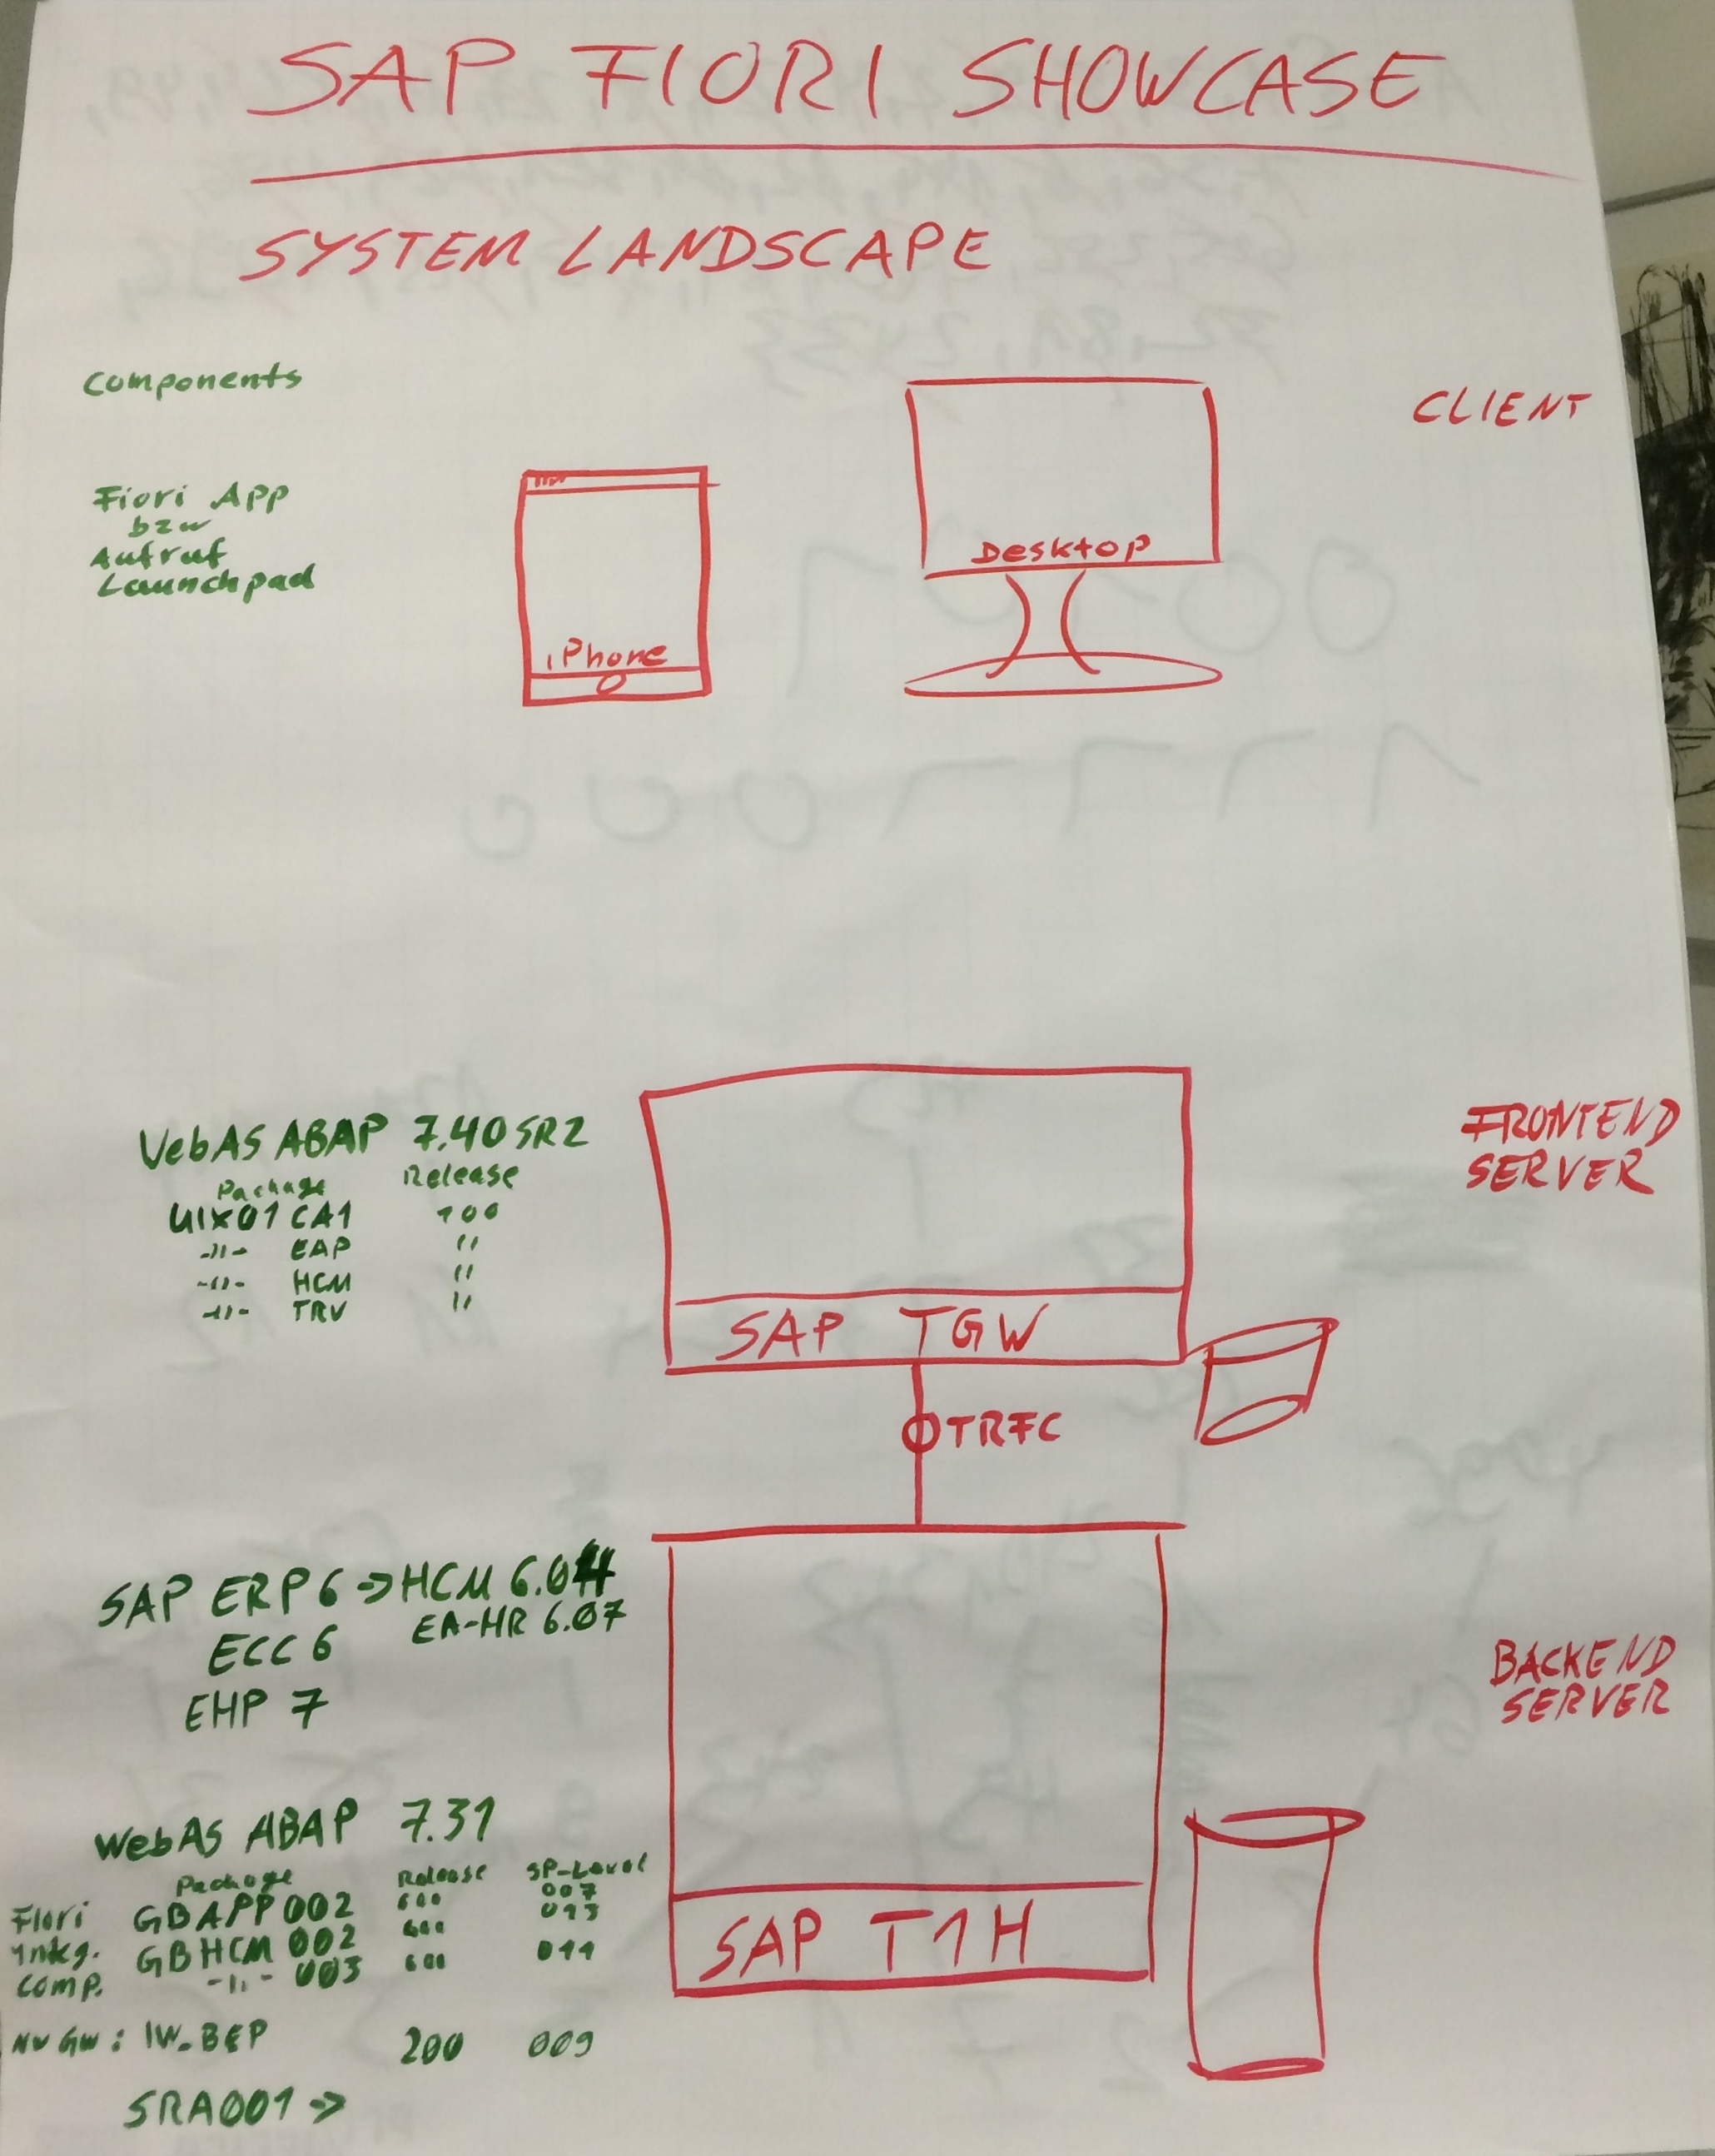 SAP FIORI SHOWCASE
SYSTEM LANDSCAPE
Components
CLIENT
Fiori App
bzw
Aufruf
Launchpad
iPhone
Desktop
FRONTEND
SERVER
WebAS ABAP 7.40 SR2
Package Release
UIX01 CA1 100
-"- EAP "
-"- HCM "
-"- TRV "
SAP TGW
TRFC
SAP ERP 6 -> HCM 6.04
ECC 6 EA-HR 6.07
EHP 7
BACKEND
SERVER
WebAS ABAP 7.31
Package Release SP-Level
Fiori GBAPP 002 600 007
Integ. GBHCM 002 600 013
Comp. -"- 003 600 011
SAP T1H
NW GW: IW_BEP 200 009
SRA001 ->